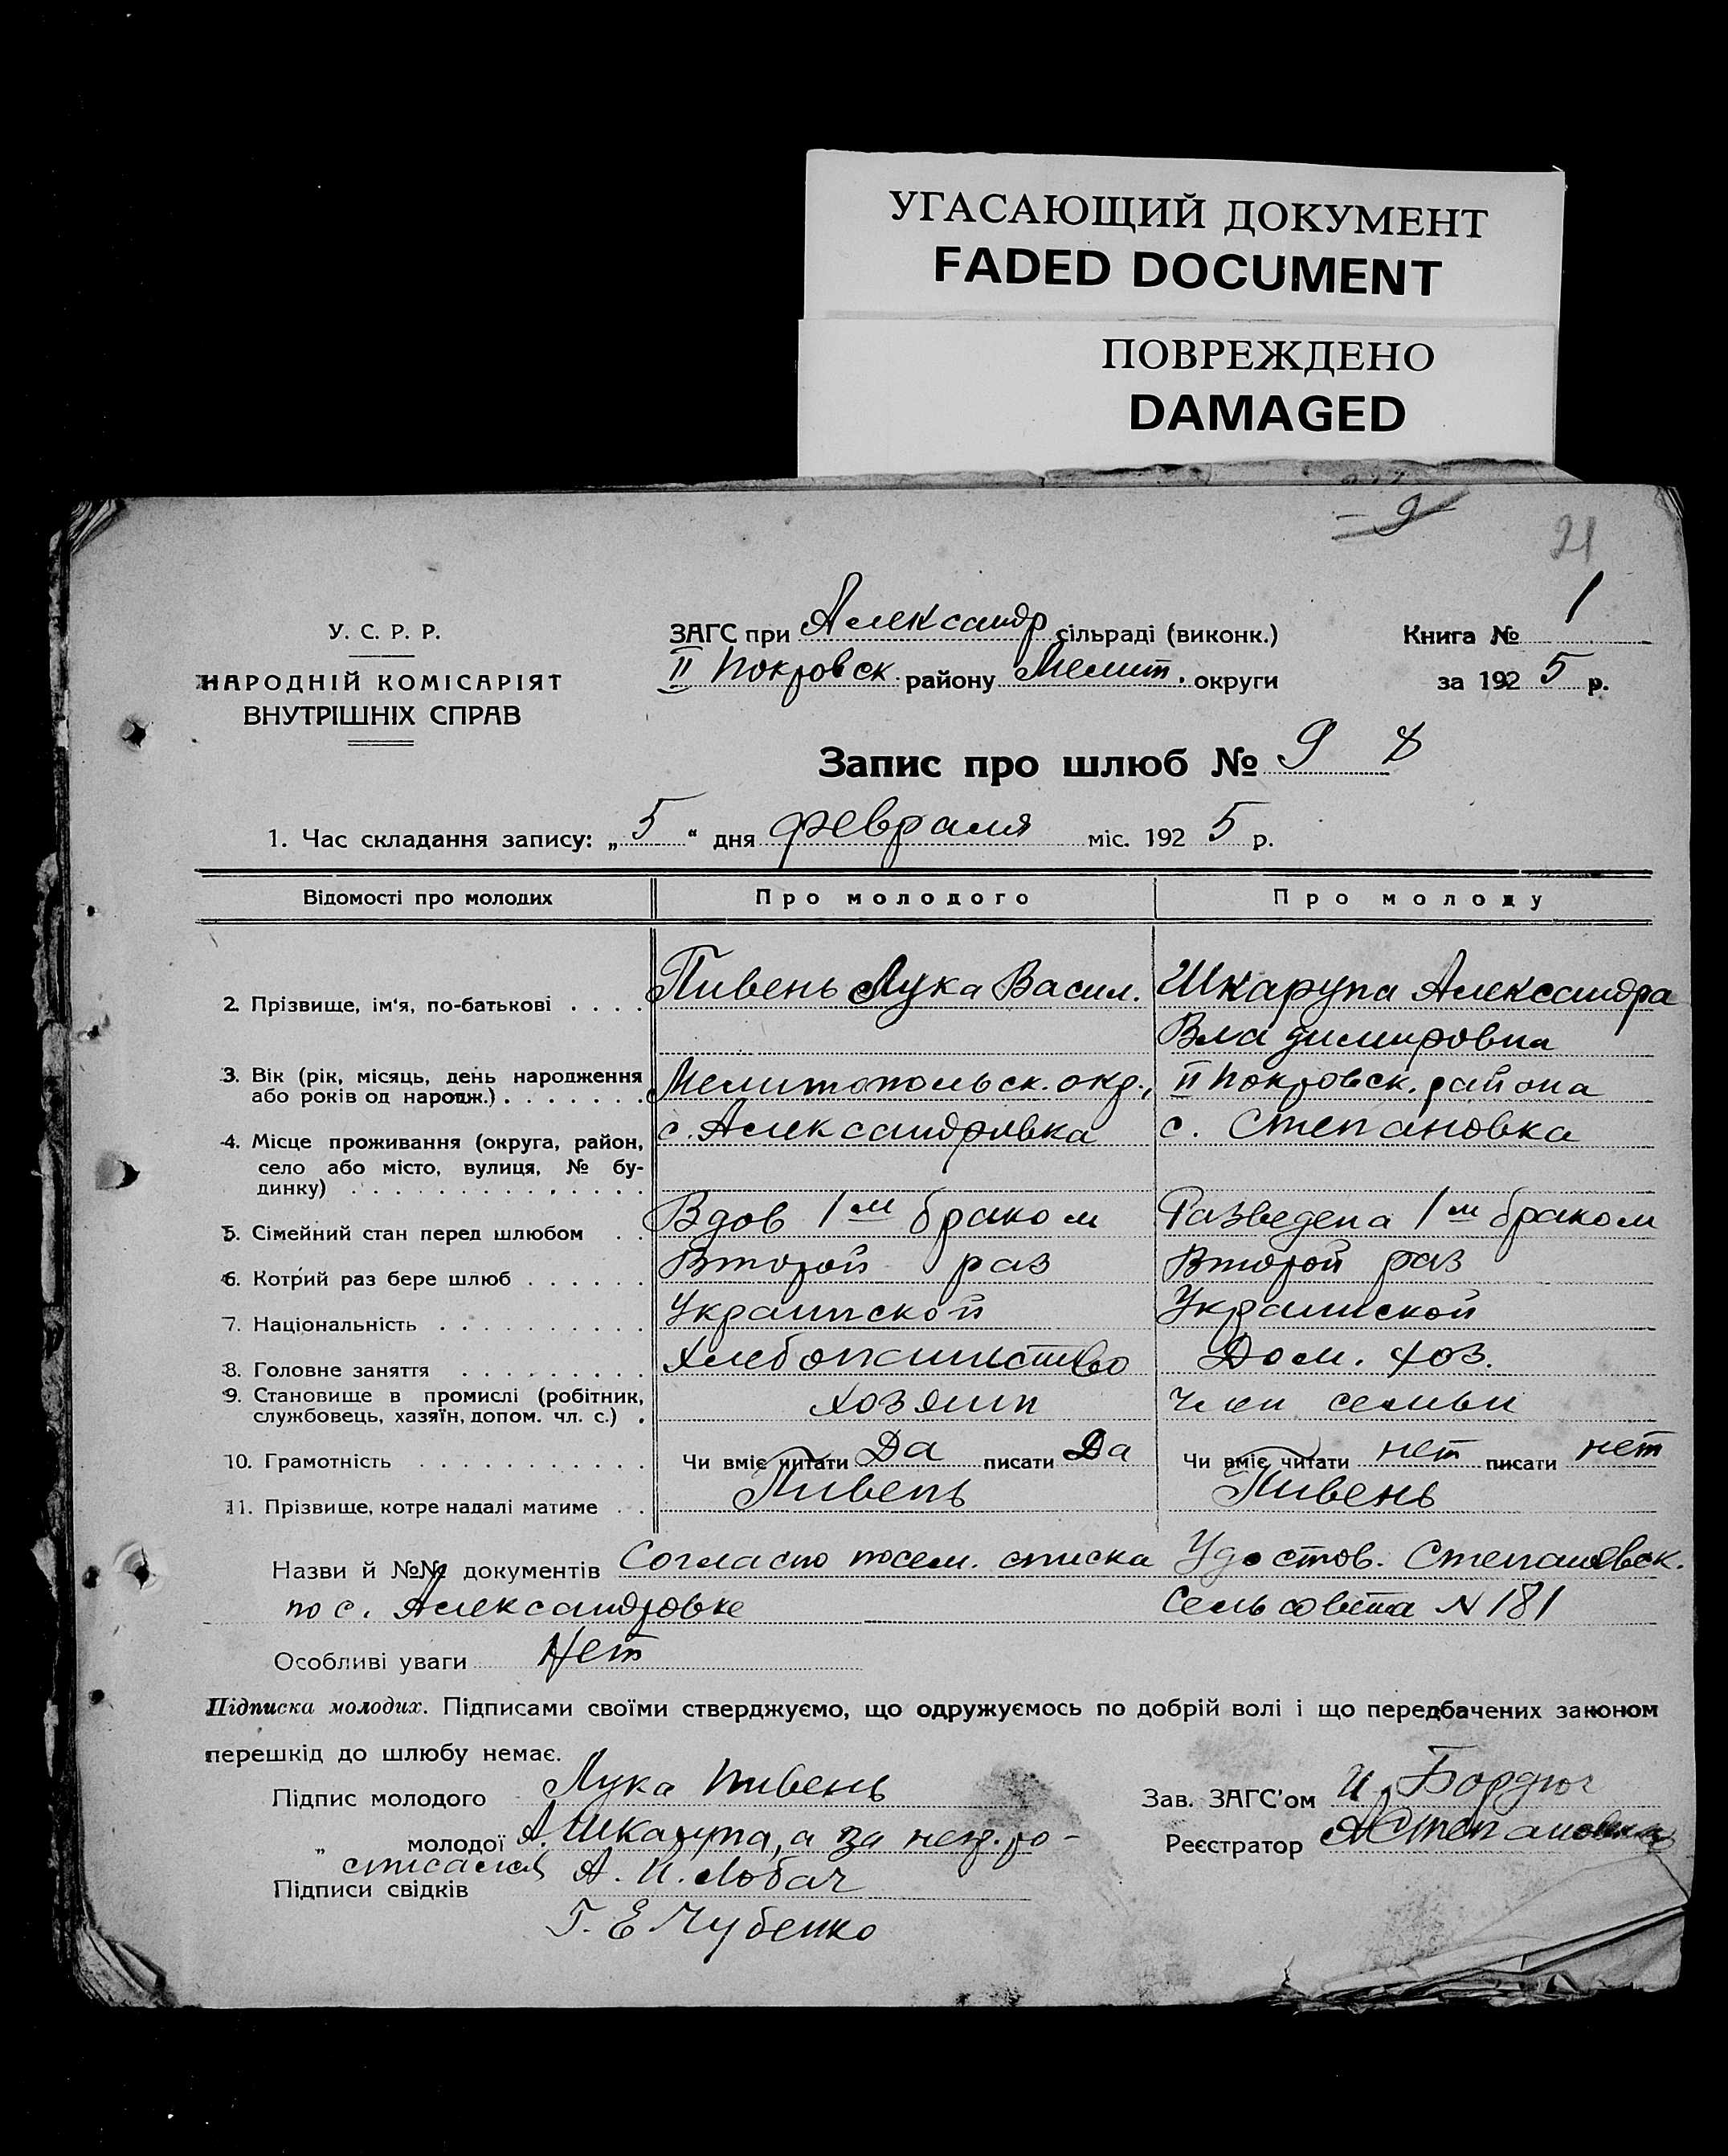 УГАСАЮЩИЙ ДОКУМЕНТ
FADED DOCUMENT
ПОВРЕЖДЕНО
DAMAGED
9
21
У. С. Р. Р.
НАРОДНІЙ КОМІСАРІЯТ
ВНУТРІШНІХ СПРАВ
ЗАГС при Александр сільраді (виконк.)
II Покровск. району Мелит. округи
Книга № 1
за 1925 р.
Запис про шлюб № 9 8
1. Час складання запису: „5“ дня февраля міс. 1925 р.
Відомості про молодих Про молодого Про молоду
2. Прізвище, ім'я, по-батькові . . . . Пивень Лука Васил. Шкарупа Александра
Владимировна
3. Вік (рік, місяць, день народження Мелитопольск. окр., II Покровск. района
або років од народж.) . . . . . . .
4. Місце проживання (округа, район, с. Александровка с. Степановка
село або місто, вулиця, № бу-
динку) . . . . . . . . . . . . . .
5. Сімейний стан перед шлюбом . . Вдов 1м браком Разведена 1м браком
6. Котрий раз бере шлюб . . . . . . Второй раз Второй раз
7. Національність . . . . . . . . . . Украинской Украинской
8. Головне заняття . . . . . . . . . Хлебопашество Дом. хоз.
9. Становище в промислі (робітник, хозяин член семьи
службовець, хазяїн, допом. чл. с.) .
10. Грамотність . . . . . . . . . . . Чи вміє читати Да писати Да Чи вміє читати нет писати нет
11. Прізвище, котре надалі матиме . . Пивень Пивень
Назви й №№ документів Согласно посем. списка Удостов. Степановск.
по с. Александровке Сельсовета N 181
Особливі уваги Нет
Підписка молодих. Підписами своїми стверджуємо, що одружуємось по добрій волі і що передбачених законом
перешкід до шлюбу немає.
Підпис молодого Лука Пивень
„ молодої А. Шкарупа, а за негр. ро-
списался
Підписи свідків А. И. Лобач
Г. Е Чубенко
Зав. ЗАГС'ом И.
Реєстратор